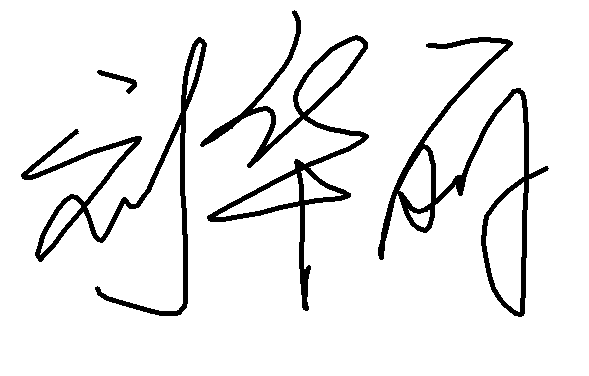 刘华丽